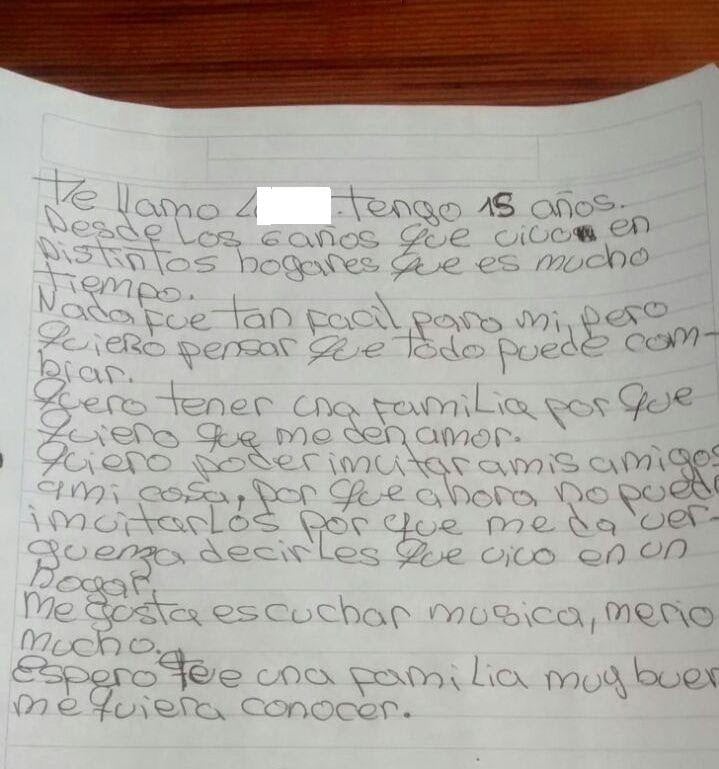 Me llamo L tengo 15 años.
Desde Los 6 años que vivo en
Distintos hogares que es mucho
tiempo.
Nada fue tan facil para mi, pero
quiero pensar que todo puede cam-
biar.
Quero tener una familia por que
quiero que me den amor.
Quiero poder invitar a mis amigos
a mi casa, por que ahora no puedo
invitarlos por que me da ver-
guenza decirles que vivo en un
hogar
me gusta escuchar musica, me rio
mucho.
espero que una familia muy buen
me quiera conocer.